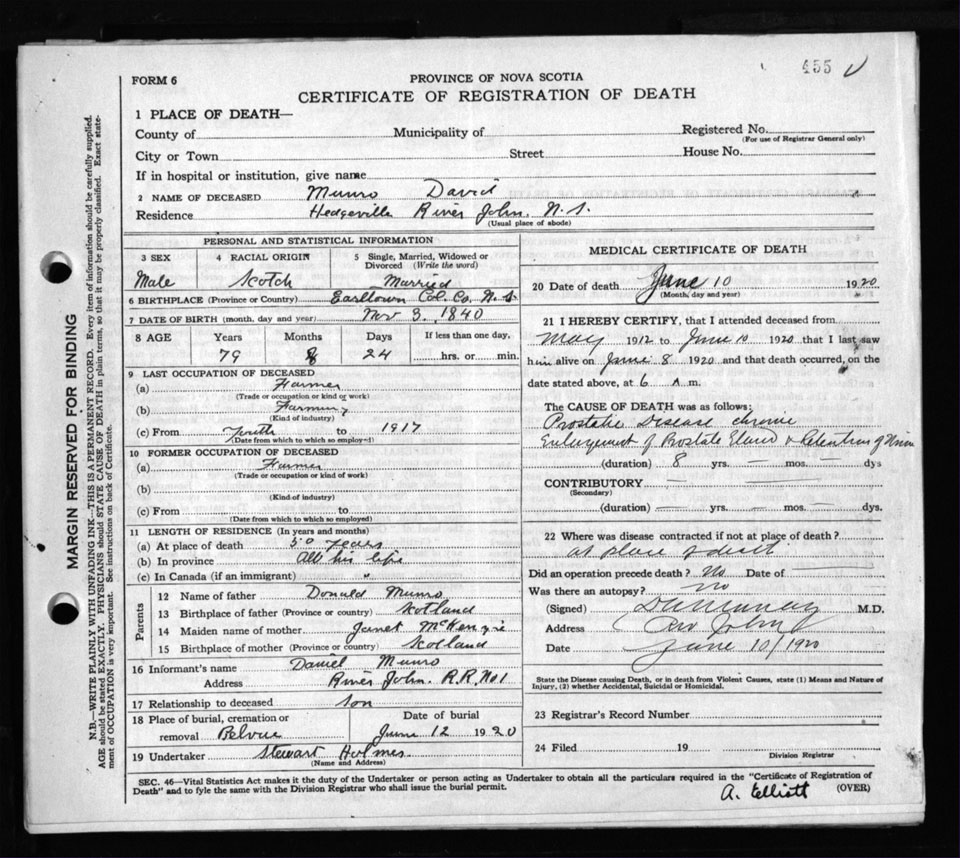 455 V
FORM 6
PROVINCE OF NOVA SCOTIA
CERTIFICATE OF REGISTRATION OF DEATH
1 PLACE OF DEATH—
County of Municipality of Registered No.
(For use of Registrar General only)
City or Town Street House No.
If in hospital or institution, give name
2 NAME OF DECEASED Munro David
Residence Hedgeville River John. N.S.
(Usual place of abode)
PERSONAL AND STATISTICAL INFORMATION
3 SEX 4 RACIAL ORIGIN 5 Single, Married, Widowed or Divorced (Write the word)
Male Scotch Married
6 BIRTHPLACE (Province or Country) Earltown Col. Co. N.S
7 DATE OF BIRTH (month, day and year) Nov 3. 1840
8 AGE Years Months Days If less than one day,
79 24 hrs. or min.
9 LAST OCCUPATION OF DECEASED
(a) Farmer
(Trade or occupation or kind of work)
(b) Farming
(Kind of industry)
(c) From Youth to 1917
(Date from which to which so employed)
10 FORMER OCCUPATION OF DECEASED
(a) Farmer
(Trade or occupation or kind of work)
(b)
(Kind of industry)
(c) From to
(Date from which to which so employed)
11 LENGTH OF RESIDENCE (In years and months)
(a) At place of death 50 years
(b) In province All his life
(c) In Canada (if an immigrant) "
Parents
12 Name of father Donald Munro
13 Birthplace of father (Province or country) Scotland
14 Maiden name of mother Janet McKenzie
15 Birthplace of mother (Province or country) Scotland
16 Informant's name Daniel Munro
Address River John. R.R. No 1
17 Relationship to deceased Son
18 Place of burial, cremation or removal Belvue
Date of burial June 12 1920
19 Undertaker Stewart Holmes
(Name and Address)
MEDICAL CERTIFICATE OF DEATH
20 Date of death June 10 1920
(Month, day and year)
21 I HEREBY CERTIFY, that I attended deceased from
May 1912 to June 10 1920 that I last saw
him alive on June 8 1920 and that death occurred, on the
date stated above, at 6 A m.
The CAUSE OF DEATH was as follows:
Prostatic Disease chronic
Enlargement of Prostate Gland & Retention of Urine
(duration) 8 yrs. — mos. — dys
CONTRIBUTORY —
(Secondary)
(duration) — yrs. — mos. — dys.
22 Where was disease contracted if not at place of death?
at place of death
Did an operation precede death? No Date of
Was there an autopsy? No
(Signed) M.D.
Address River John
Date June 10/1920
State the Disease causing Death, or in death from Violent Causes, state (1) Means and Nature of
Injury, (2) whether Accidental, Suicidal or Homicidal.
23 Registrar's Record Number
24 Filed 19
Division Registrar
SEC. 46—Vital Statistics Act makes it the duty of the Undertaker or person acting as Undertaker to obtain all the particulars required in the "Certificate of Registration of
Death" and to fyle the same with the Division Registrar who shall issue the burial permit.
A. Elliott (OVER)
MARGIN RESERVED FOR BINDING
N.B.—WRITE PLAINLY WITH UNFADING INK—THIS IS A PERMANENT RECORD. Every item of information should be carefully supplied.
AGE should be stated EXACTLY. PHYSICIANS should STATE CAUSE OF DEATH in plain terms, so that it may be properly classified. Exact state-
ment of OCCUPATION is very important. See instructions on back of Certificate.